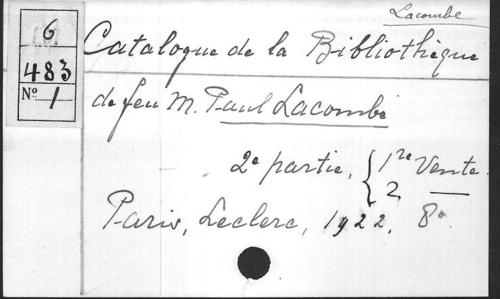 Lacombe
6
483
Nº 1
Catalogue de la Bibliothèque
de feu M. Paul Lacombe
2e partie, { 1re Vente
2 —
Paris, Leclerc, 1922, 8º